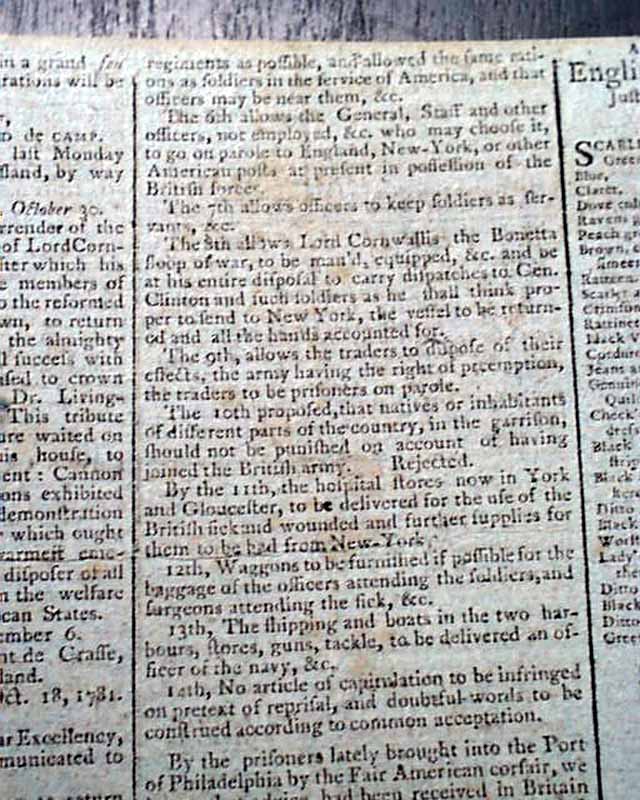 in a grand feu
rations will be
DE CAMP.
last Monday
sland, by way
October 30.
rrender of the
of Lord Corn-
fter which his
e members of
o the reformed
wn, to return
the almighty
l succeſs with
aſed to crown
Dr. Living-
This tribute
ure waited on
his houſe, to
ent : Cannon
ons exhibited
demonſtration
which ought
diſpoſer of all
n the welfare
can States.
ember 6.
nt de Graſſe,
land.
Oct. 18, 1781.
ar Excellency,
mmunicated to
to return
regiments as poſſible, and allowed the ſame rati-
ons as ſoldiers in the ſervice of America, and that
officers may be near them, &c.
The 6th allows the General, Staff and other
officers, not employed, &c. who may chooſe it,
to go on parole to England, New-York, or other
American poſts at preſent in poſſeſſion of the
Britiſh forces.
The 7th allows officers to keep ſoldiers as ſer-
vants, &c.
The 8th allows Lord Cornwallis the Bonetta
ſloop of war, to be man'd, equipped, &c. and be
at his entire diſpoſal to carry diſpatches to Gen.
Clinton and ſuch ſoldiers as he ſhall think pro-
per to ſend to New York, the veſſel to be return-
ed and all the hands accounted for.
The 9th, allows the traders to diſpoſe of their
effects, the army having the right of preemption,
the traders to be priſoners on parole.
The 10th propoſed, that natives or inhabitants
of different parts of the country, in the garriſon,
ſhould not be puniſhed on account of having
joined the Britiſh army. Rejected.
By the 11th, the hoſpital ſtores now in York
and Glouceſter, to be delivered for the uſe of the
Britiſh ſick and wounded and further ſupplies for
them to be had from New-York.
12th, Waggons to be furniſhed if poſſible for the
baggage of the officers attending the ſoldiers, and
ſurgeons attending the ſick, &c.
13th, The ſhipping and boats in the two har-
bours, ſtores, guns, tackle, to be delivered an of-
ficer of the navy, &c.
14th, No article of capitulation to be infringed
on pretext of repriſal, and doubtful words to be
conſtrued according to common acceptation.
By the priſoners lately brought into the Port
of Philadelphia by the Fair American corſair, we
had been received in Britain
Engli
Juſt
SCARLE
Gree
Blue,
Claret,
Dove col
Ravens
Peach gr
Brown,
Scarlet
Crimſon
Rattinet
Black V
Cordure
Jeans a
Genuin
Quil
Check
Black
Black
Ditto
Black
Worſt
Lady
the
Ditto
Black
Ditto
Green